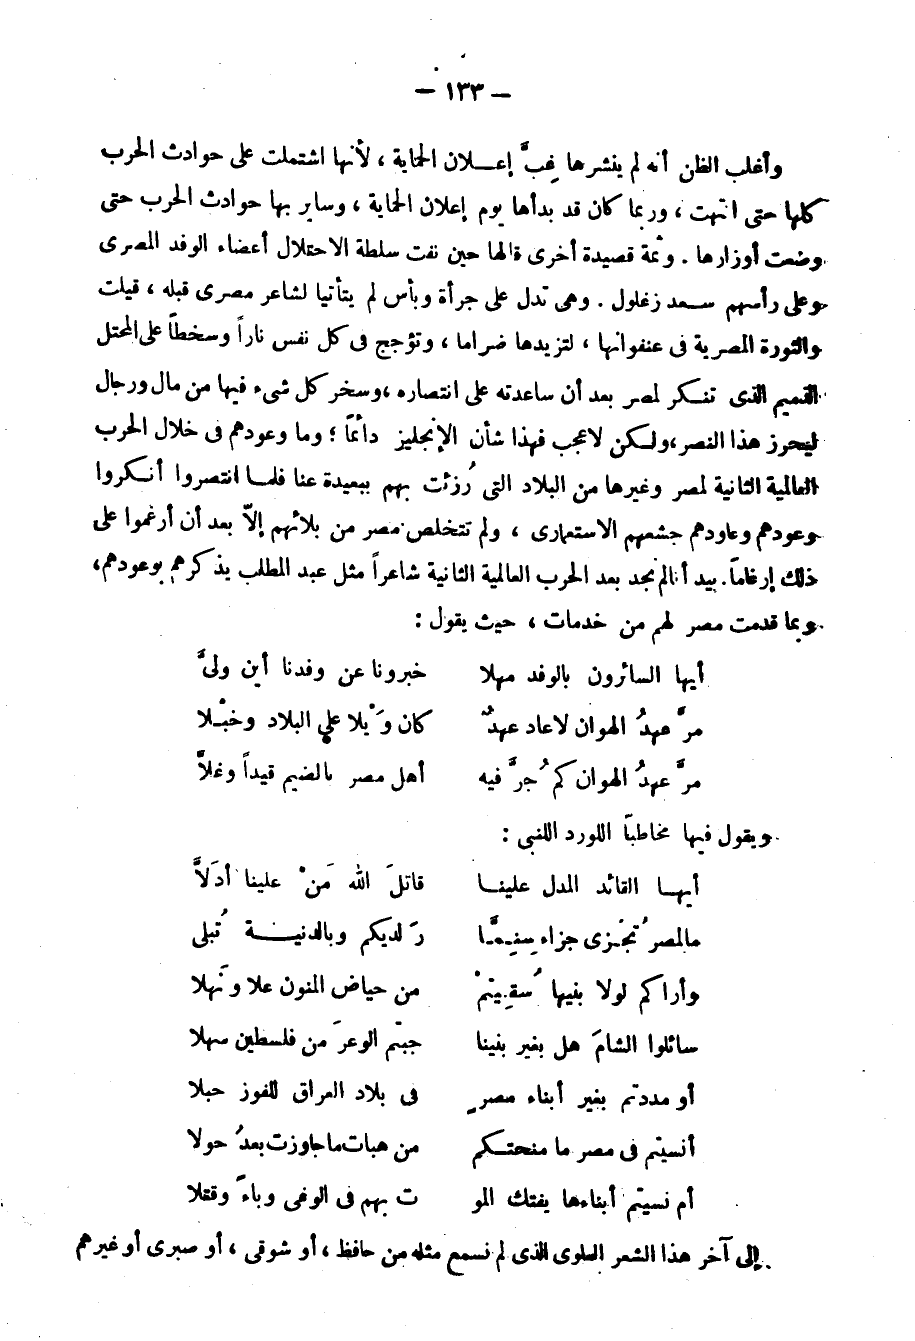 — ١٣٣ —
وأغلب الظن أنه لم ينشرها غِبَّ إعـلان الحماية ، لأنها اشتملت على حوادث الحرب
كلها حتى انتهت ، وربما كان قد بدأها يوم إعلان الحماية ، وساير بها حوادث الحرب حتى
وضعت أوزارها . وثمة قصيدة أخرى قالها حين نفت سلطة الاحتلال أعضاء الوفد المصرى
وعلى رأسهم سـعد زغلول . وهى تدل على جرأة وبأس لم يتأتيا لشاعر مصرى قبله ، قيلت
والثورة المصرية فى عنفوانها ، لتزيدها ضراما ، وتؤجج فى كل نفس ناراً وسخطاً على المحتل
الذى تنكر لمصر بعد أن ساعدته على انتصاره ، وسخر كل شىء فيها من مال ورجال
ليحرز هذا النصر ، ولكن لاعجب فهذا شأن الإنجليز دائماً ؛ وما وعودهم فى خلال الحرب
العالمية الثانية لمصر وغيرها من البلاد التى رُزئت بهم ببعيدة عنا فلما انتصروا أنكروا
وعودهم وعاودهم جشعهم الاستعمارى ، ولم تتخلص مصر من بلائهم إلاّ بعد أن أرغموا على
ذلك إرغاماً . بيد أنا لم نجد بعد الحرب العالمية الثانية شاعراً مثل عبد المطلب يذكرهم بوعودهم،
وبما قدمت مصر لهم من خدمات ، حيث يقول :
أيها السائرون بالوفد مهلا خبرونا عن وفدنا أين ولىَّ
مرَّ عهدُ الهوان لاعاد عهدٌ كان وَيْلا على البلاد وخبْلا
مرَّ عهدُ الهوان كم جُرَّ فيه أهل مصر بالضيم قيداً وغلاَّ
ويقول فيها مخاطباً اللورد اللنبى :
أيهـا القائد المدل علينـا قاتلَ الله مَنْ علينا أدَلاَّ
مالمصر تُجْزى جزاء سِنِـمَّـا رَ لديكم وبالدنيـة تُبلى
وأراكم لولا بنيها سُقِيتمْ من حياض المنون علا ونَهلا
سائلوا الشامَ هل بغير بنينا جبتم الوعرَ من فلسطين سهلا
أو مددتم بغير أبناء مصرٍ فى بلاد العراق للفوز حبلا
أنسيتم فى مصر ما منحتـكم من هبات ماجاوزت بعدُ حولا
أم نسيتم أبناءها يفتك المو ت بهم فى الوغى وباءً وقتلا
إلى آخر هذا الشعر العلوى الذى لم نسمع مثله من حافظ ، أو شوقى ، أو صبرى أو غيرهم